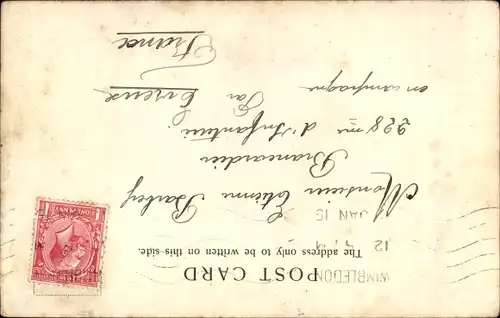 POST CARD
The address only to be written on this side.
WIMBLEDON
12
JAN 15
ONE PENNY
Monsieur Etienne Barbey
Brancardier
228 me d'Infanterie
en campagne
Par Evreux
France